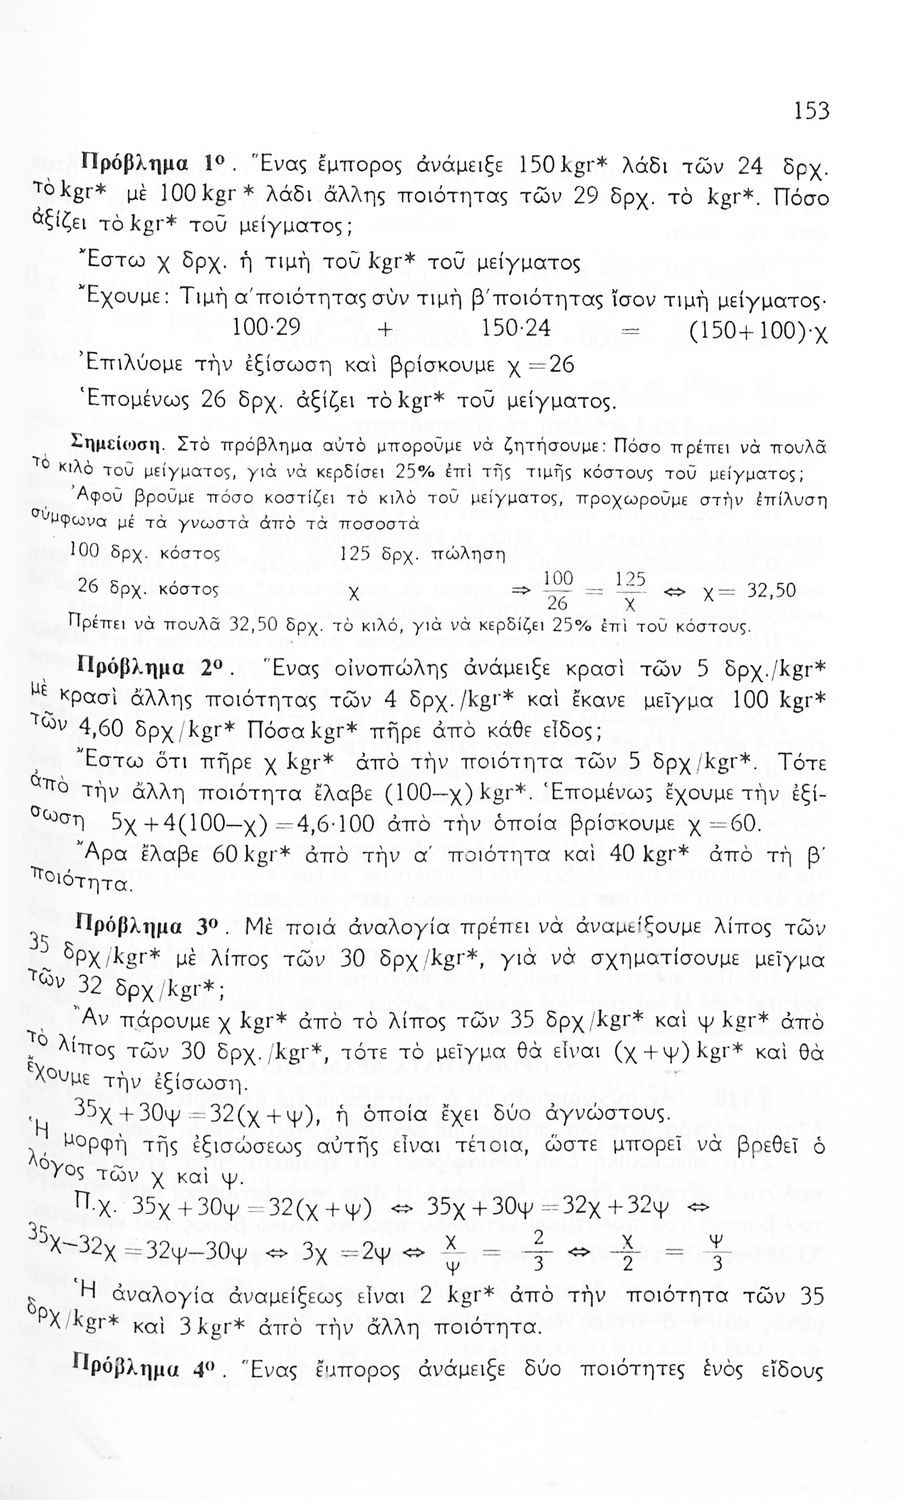 153
Πρόβλημα 1ο . Ἕνας ἔμπορος ἀνάμειξε 150 kgr* λάδι τῶν 24 δρχ.
τὸ kgr* μὲ 100 kgr * λάδι ἄλλης ποιότητας τῶν 29 δρχ. τὸ kgr*. Πόσο
ἀξίζει τὸ kgr* τοῦ μείγματος;
Ἔστω χ δρχ. ἡ τιμὴ τοῦ kgr* τοῦ μείγματος
Ἔχουμε: Τιμὴ α΄ ποιότητας σὺν τιμὴ β΄ ποιότητας ἴσον τιμὴ μείγματος·
100·29 + 150·24 = (150+100)·χ
Ἐπιλύομε τὴν ἐξίσωση καὶ βρίσκουμε χ =26
Ἑπομένως 26 δρχ. ἀξίζει τὸ kgr* τοῦ μείγματος.
Σημείωση. Στὸ πρόβλημα αὐτὸ μποροῦμε νὰ ζητήσουμε: Πόσο πρέπει νὰ πουλᾶ
τὸ κιλὸ τοῦ μείγματος, γιὰ νὰ κερδίσει 25% ἐπὶ τῆς τιμῆς κόστους τοῦ μείγματος;
Ἀφοῦ βροῦμε πόσο κοστίζει τὸ κιλὸ τοῦ μείγματος, προχωροῦμε στὴν ἐπίλυση
σύμφωνα μέ τὰ γνωστὰ ἀπὸ τὰ ποσοστὰ
100 δρχ. κόστος 125 δρχ. πώληση
26 δρχ. κόστος χ ⇒ 100/26 = 125/χ ⇔ χ= 32,50
Πρέπει νὰ πουλᾶ 32,50 δρχ. τὸ κιλό, γιὰ νὰ κερδίζει 25% ἐπὶ τοῦ κόστους.
Πρόβλημα 2ο . Ἕνας οἰνοπώλης ἀνάμειξε κρασὶ τῶν 5 δρχ./kgr*
μὲ κρασὶ ἄλλης ποιότητας τῶν 4 δρχ./kgr* καὶ ἔκανε μεῖγμα 100 kgr*
τῶν 4,60 δρχ/kgr* Πόσα kgr* πῆρε ἀπὸ κάθε εἶδος;
Ἔστω ὅτι πῆρε χ kgr* ἀπὸ τὴν ποιότητα τῶν 5 δρχ/kgr*. Τότε
ἀπὸ τὴν ἄλλη ποιότητα ἔλαβε (100—χ) kgr*. Ἑπομένως ἔχουμε τὴν ἐξί-
σωση 5χ+4(100—χ) =4,6·100 ἀπὸ τὴν ὁποία βρίσκουμε χ =60.
Ἄρα ἔλαβε 60 kgr* ἀπὸ τὴν α΄ ποιότητα καὶ 40 kgr* ἀπὸ τὴ β΄
ποιότητα.
Πρόβλημα 3ο . Μὲ ποιά ἀναλογία πρέπει νὰ ἀναμείξουμε λίπος τῶν
35 δρχ/kgr* μὲ λίπος τῶν 30 δρχ/kgr*, γιὰ νὰ σχηματίσουμε μεῖγμα
τῶν 32 δρχ/kgr*;
Ἂν πάρουμε χ kgr* ἀπὸ τὸ λίπος τῶν 35 δρχ/kgr* καὶ ψ kgr* ἀπὸ
τὸ λίπος τῶν 30 δρχ./kgr*, τότε τὸ μεῖγμα θὰ εἶναι (χ+ψ) kgr* καὶ θὰ
ἔχουμε τὴν ἐξίσωση.
35χ+30ψ =32(χ+ψ), ἡ ὁποία ἔχει δύο ἀγνώστους.
Ἡ μορφὴ τῆς ἐξισώσεως αὐτῆς εἶναι τέτοια, ὥστε μπορεῖ νὰ βρεθεῖ ὁ
λόγος τῶν χ καὶ ψ.
Π.χ. 35χ+30ψ =32(χ+ψ) ⇔ 35χ+30ψ =32χ+32ψ ⇔
35χ—32χ =32ψ—30ψ ⇔ 3χ =2ψ ⇔ χ/ψ = 2/3 ⇔ χ/2 = ψ/3
Ἡ ἀναλογία ἀναμείξεως εἶναι 2 kgr* ἀπὸ τὴν ποιότητα τῶν 35
δρχ/kgr* καὶ 3 kgr* ἀπὸ τὴν ἄλλη ποιότητα.
Πρόβλημα 4ο . Ἕνας ἔμπορος ἀνάμειξε δύο ποιότητες ἑνὸς εἴδους